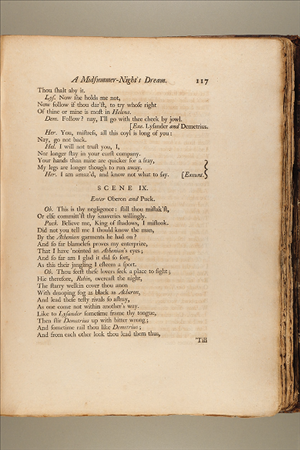 A Midsummer-Night's Dream. 117
Thou shalt aby it.
Lys. Now she holds me not,
Now follow if thou dar'st, to try whose right
Of thine or mine is most in Helena.
Dem. Follow? nay, I'll go with thee cheek by jowl.
[Exe. Lysander and Demetrius.
Her. You, mistress, all this coyl is long of you:
Nay, go not back.
Hel. I will not trust you, I,
Nor longer stay in your curst company.
Your hands than mine are quicker for a fray,
My legs are longer though to run away.
Her. I am amaz'd, and know not what to say. [Exeunt.
SCENE IX.
Enter Oberon and Puck.
Ob. This is thy negligence: still thou mistak'st,
Or else committ'st thy knaveries willingly.
Puck. Believe me, King of shadows, I mistook.
Did not you tell me I should know the man,
By the Athenian garments he had on?
And so far blameless proves my enterprize,
That I have 'nointed an Athenian's eyes;
And so far am I glad it did so sort,
As this their jangling I esteem a sport.
Ob. Thou seest these lovers seek a place to fight;
Hie therefore, Robin, overcast the night,
The starry welkin cover thou anon
With drooping fog as black as Acheron,
And lead these testy rivals so astray,
As one come not within another's way.
Like to Lysander sometime frame thy tongue,
Then stir Demetrius up with bitter wrong;
And sometime rail thou like Demetrius;
And from each other look thou lead them thus,
Till